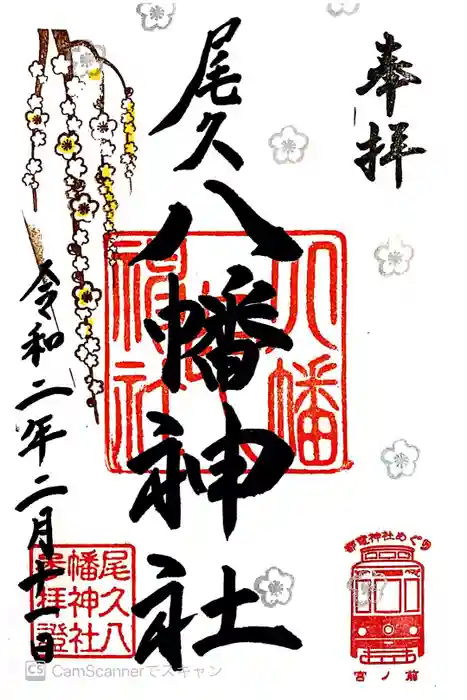 奉拝
尾久
八幡神社
令和二年二月十一日
八幡
神社
尾久八
幡神社
参拝證
都電神社めぐり
宮ノ前
CS CamScannerでスキャン